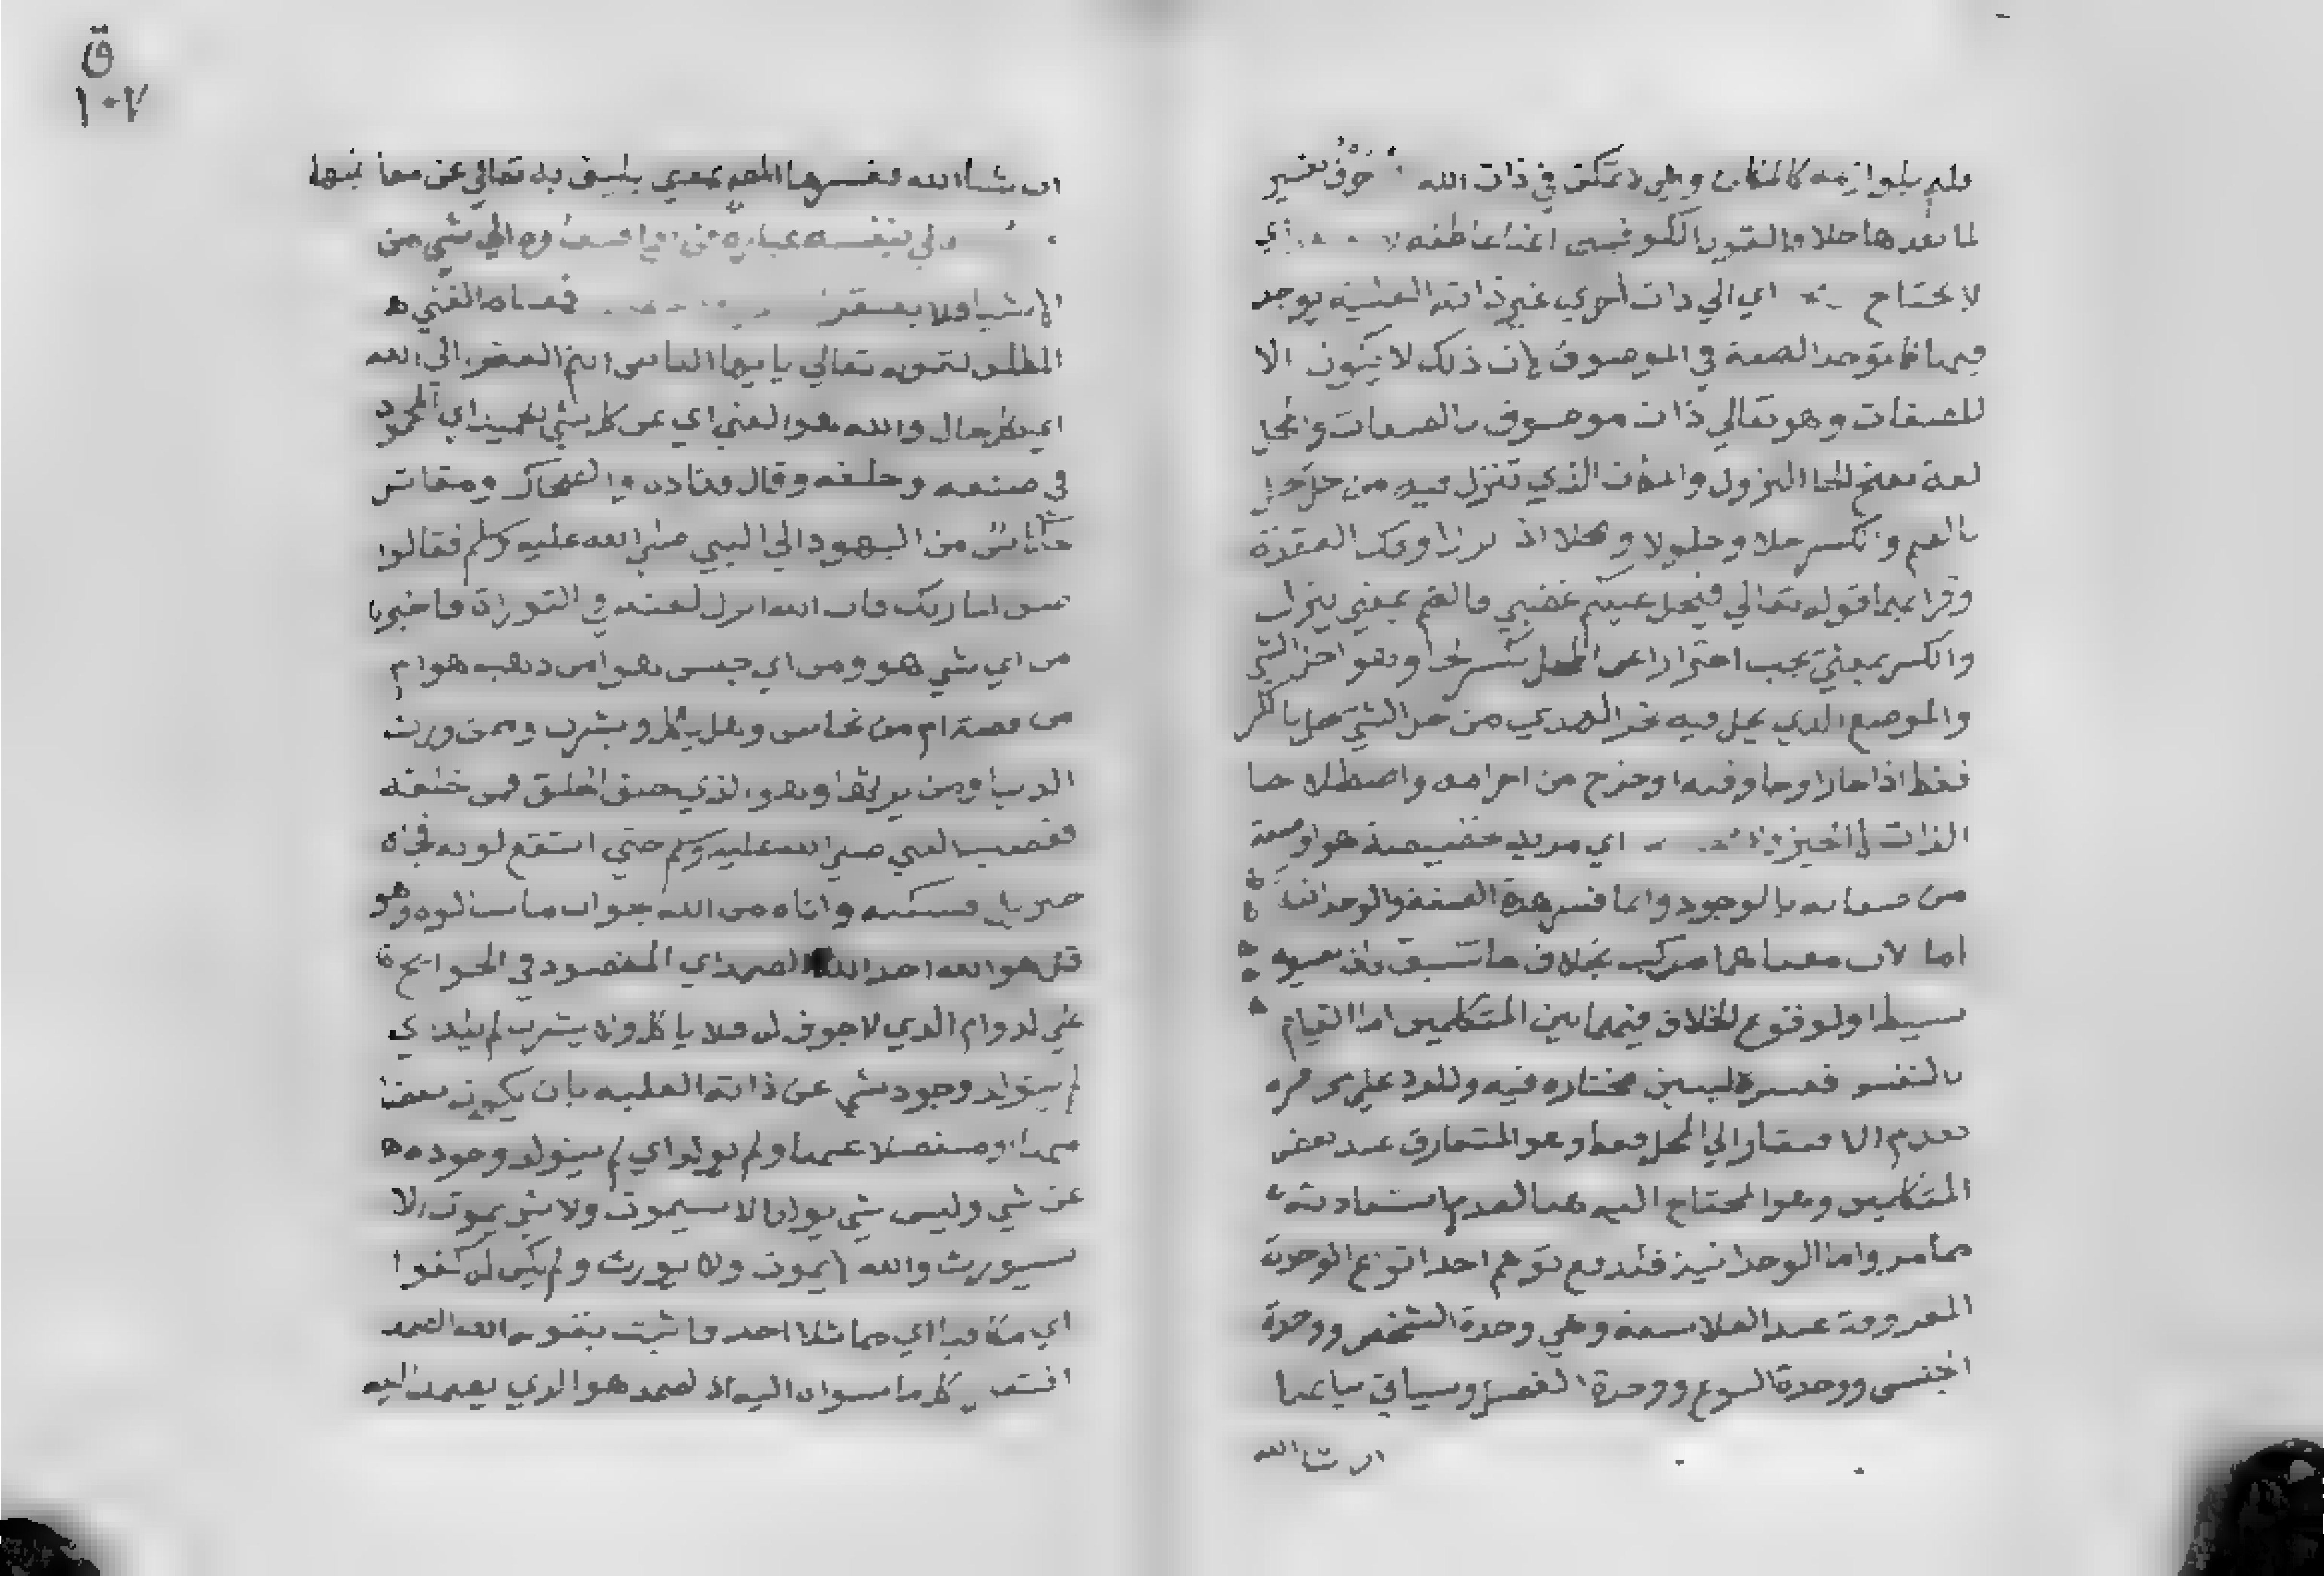 ق
١٠٧
في ذات الله حرف تفسير
لما بعدها
لا يحتاج اي الي ذات اخري غير ذاته العلية يوجد
فيها كما توجد الصفة في الموصوف لان ذلك لا يكون الا
للصفات وهو تعالي ذات موصوف بالصفات والمحل
لغة بفتح الحا النزول والمكان الذي تنزل فيه من حل يحل
بالضم والكسر حلا وحلولا ومحلا اذ نزل اوفك العقدة
وقرا بهما قوله تعالي فيحل عليكم غضبي فالضم بمعني ينزل
والكسر بمعني يجب احترازا عن المحل بكسر الحا وهو اخر الشي
والموضع الذي يحل فيه نحر الهدي من حل الشي يحل بالكسر
فقط اذا او خرج من احرامه واصطلاحا
الذات اي مزيد خصيصة هو او صفة
من صفاته بالوجود وانما فسر هذه الصفة والوحدانية
اما لان معناهما مركب بخلاف ما سبق فان
بسيط او لوقوع الخلاف فيهما بين المتكلمين اما القيام
بالنفس ففسره ليبين مختاره فيه وللرد علي من فسره
بعدم الافتقار الي المحل فقط وهو المتعارف عند بعض
المتكلمين وهو المحتاج اليه هنا لعدم استفادته
مما مر واما الوحدانية فلدفع توهم احد انواع الوحدة
المعروفة عند الفلاسفة وهي وحدة الشخص ووحدة
الجنس ووحدة النوع ووحدة الفصل وسياتي بيانها
ان شا الله
ان شا الله ففسرها المص بمعني يليق به تعالي عن معانيها
بنفسه عبارة عن الي شي من
الاشيا ولا يفتقر فمعناه الغني
المطلق لقوله تعالي يا ايها الناس انتم الفقرا الي الله
اي بكل حال والله هو الغني اي عن كل شي الحميد اي المحمود
في صنعه وخلقه وقال قتادة والضحاك ومقاتل
جا ناس من اليهود الي النبي صلي الله عليه وسلم فقالوا
صف لنا ربك فان الله انزل نعته في التوراة فاخبرنا
من اي شي هو ومن اي جنس هو امن ذهب هو ام
من فضة ام من نحاس وهل ياكل ويشرب وممن ورث
الدنيا ومن يورثها وهو الذي خلق الخلق فمن خلقه
فغضب النبي صلي الله عليه وسلم حتي انتقع لونه فجاه
جبريل فسكنه واتاه من الله جواب ما سالوه وهو
قل هو الله احد الله الصمد اي المقصود في الحوايج
علي الدوام الذي لا جوف له فلا ياكل ولا يشرب لم يلد اي
لم يتولد وجود شي عن ذاته العلية بان يكون بعضا
منها او منفصلا عنها ولم يولد اي لم يتولد وجوده
عن شي وليس شي يولد الا سيموت ولا شي يموت الا
سيورث والله لا يموت ولا يورث ولم يكن له كفوا
اي مكافيا اي مماثلا احد فاثبت بقوله الله الصمد
افتقار كل ما سواه اليه اذ الصمد هو الذي يصمد اليه